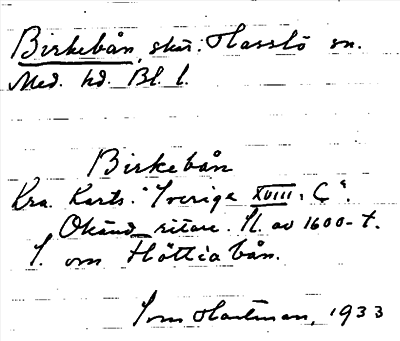 Birkebån, skär: Hasslö sn.
Med. hd. Bl. l.
Birkebån
Kra. Karts. "Sverige XVIII: C".
Okänd ritare. Sl. av 1600-t.
S. om Höttiabån.
Hartman, 1933